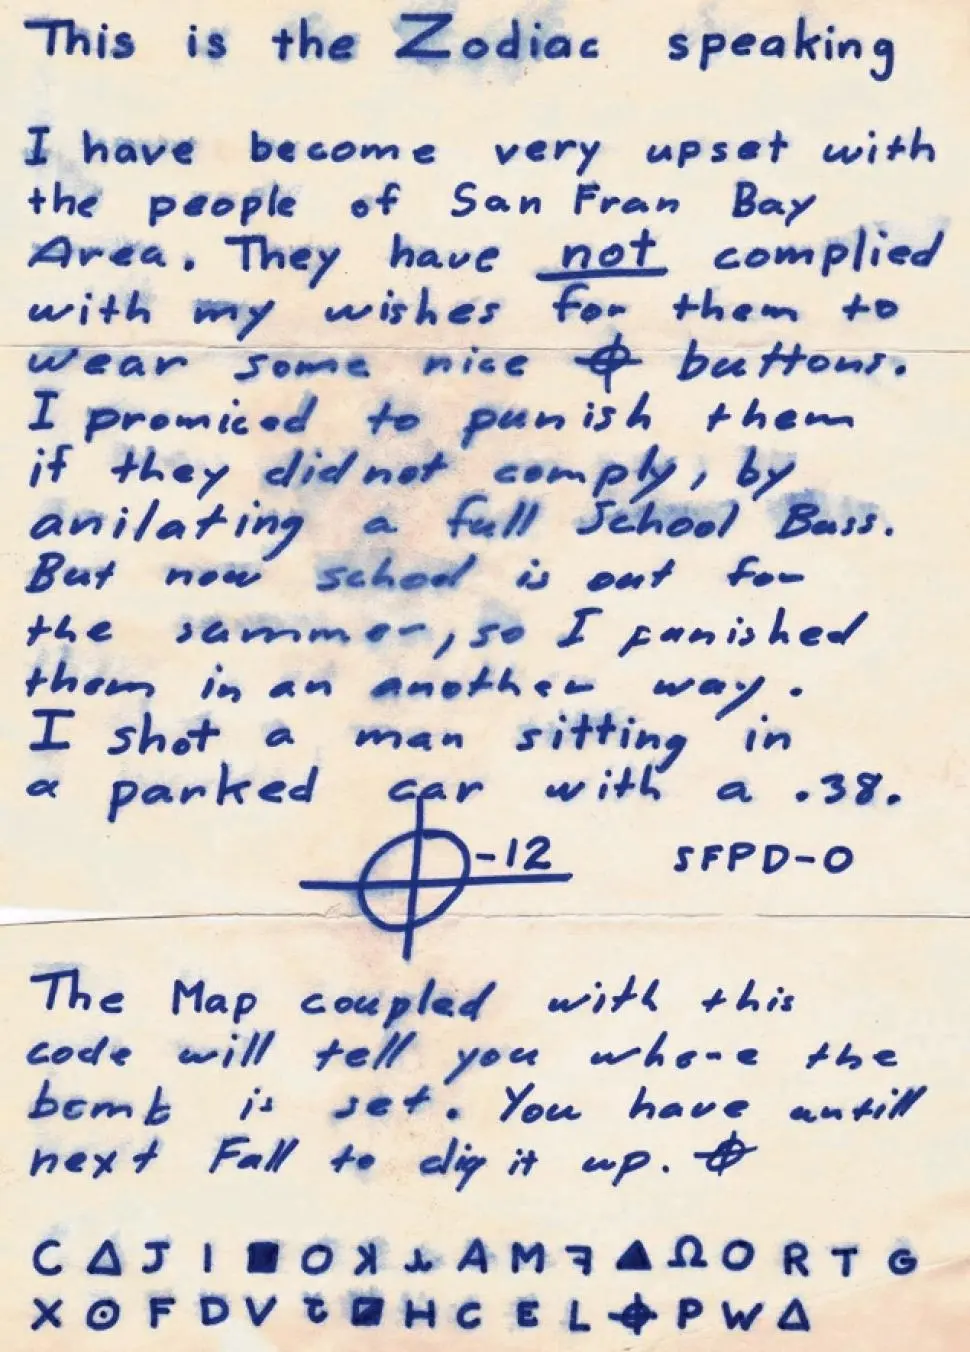 This is the Zodiac speaking
I have become very upset with
the people of San Fran Bay
Area. They have not complied
with my wishes for them to
wear some nice ⌖ buttons.
I promiced to punish them
if they did not comply, by
anilating a full School Buss.
But now school is out for
the summer, so I punished
them in an another way.
I shot a man sitting in
a parked car with a .38.
⌖-12 SFPD-0
The Map coupled with this
code will tell you where the
bomb is set. You have untill
next Fall to dig it up. ⌖
C Δ J I ■ O ꓘ ⅄ A M ꟻ ▲ Ω O R T G
X ⊙ F D V Ҽ ◪ H C E L ⌖ P W Δ